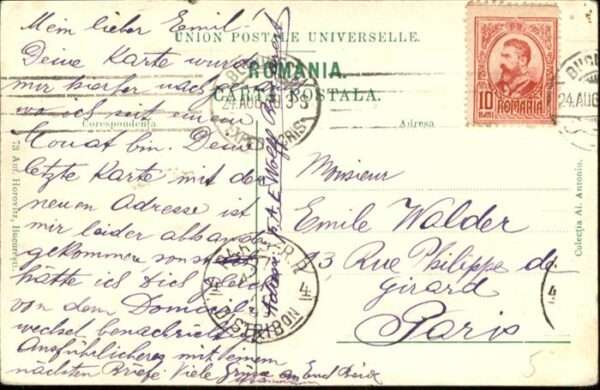 Mein lieber Emil!
Deine Karte wurde
mir hierher nach
wo ich seit einem
Monat bin. Deine
letzte Karte mit der
neuen Adresse ist
mir leider abhanden
gekommen, sonst
hätte ich dich gleich
von dem Domicil-
wechsel benachrichtigt
Ausführlicheres mit meinem
nächsten Briefe. Viele Grüsse an Euch
UNION POSTALE UNIVERSELLE.
ROMÂNIA.
CARTĂ POSTALA.
Corespondența.
Adresa.
24 AUG
10
BANI
ROMANIA
24 AUG
Monsieur
Emile Walder
13 Rue Philippe de
Girard
Paris
DISTRIBON
4
4
73 Ant. Horovitz, București.
Colecția Al. Antoniu.
5